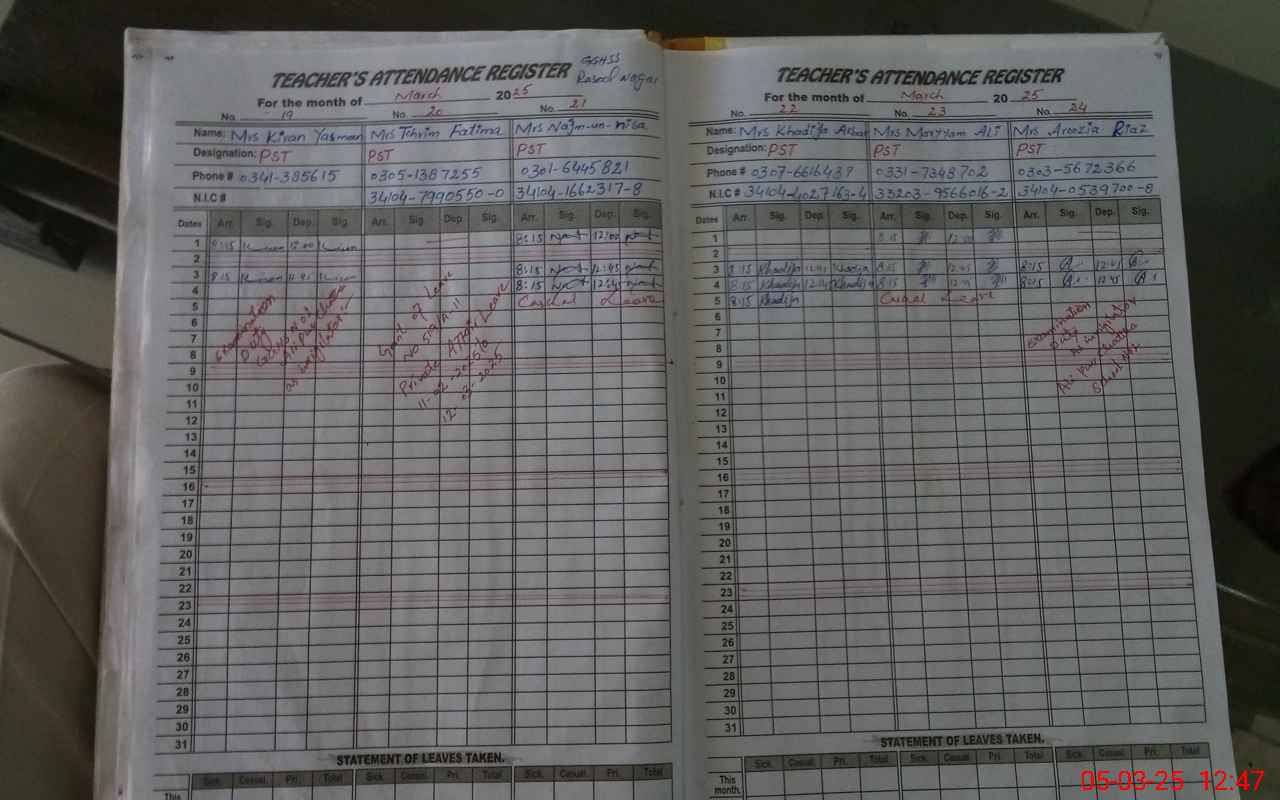 GGHSS
Rasool Nagar
TEACHER'S ATTENDANCE REGISTER
For the month of March 2025
No 19 No. 20 No. 21
Name: Mrs Kiran Yasman Mrs Tehrim Fatima Mrs Najm-un-nisa
Designation: PST PST PST
Phone # 0341-385615 0305-1387255 0301-6445821
N.I.C # 34104-7990550-0 34104-1662317-8
Dates Arr. Sig. Dep. Sig. Arr. Sig. Dep. Sig. Arr. Sig. Dep. Sig.
1 8:15 12:00 8:15 12:00
2
3 8:15 11:45 8:15 12:45
4 8:15 12:45
5 Casual Leave
6
7
8
9
10
11
12
13
14
15
16
17
18
19
20
21
22
23
24
25
26
27
28
29
30
31
Examination
Duty
as invigilator
Grant of Leave
Private Leave
11-02-2025 to
12-03-2025
STATEMENT OF LEAVES TAKEN.
Sick. Casual. Pri. Total Sick. Casual. Pri. Total Sick. Casual. Pri. Total
This
TEACHER'S ATTENDANCE REGISTER
For the month of March 2025
No. 22 No. 23 No. 24
Name: Mrs Khadija Akbar Mrs Maryam Ali Mrs Aroozia Riaz
Designation: PST PST PST
Phone # 0307-6616439 0331-7348702 0303-5672366
N.I.C # 34104-4027163-4 33203-9566016-2 34104-0539700-8
Dates Arr. Sig. Dep. Sig. Arr. Sig. Dep. Sig. Arr. Sig. Dep. Sig.
1 8:15 12:00
2
3 8:15 Khadija 12:45 Khadija 8:15 12:45 8:15 12:45
4 8:15 Khadija 12:45 Khadija 8:15 12:45 8:15 12:45
5 8:15 Khadija Casual Leave
6
7
8
9
10
11
12
13
14
15
16
17
18
19
20
21
22
23
24
25
26
27
28
29
30
31
Examination
Duty
As invigilator
Ali Pur Chattha
STATEMENT OF LEAVES TAKEN.
Sick. Casual. Pri. Total Sick. Casual. Pri. Total Sick. Casual. Pri. Total
This
month.
05-03-25 12:47